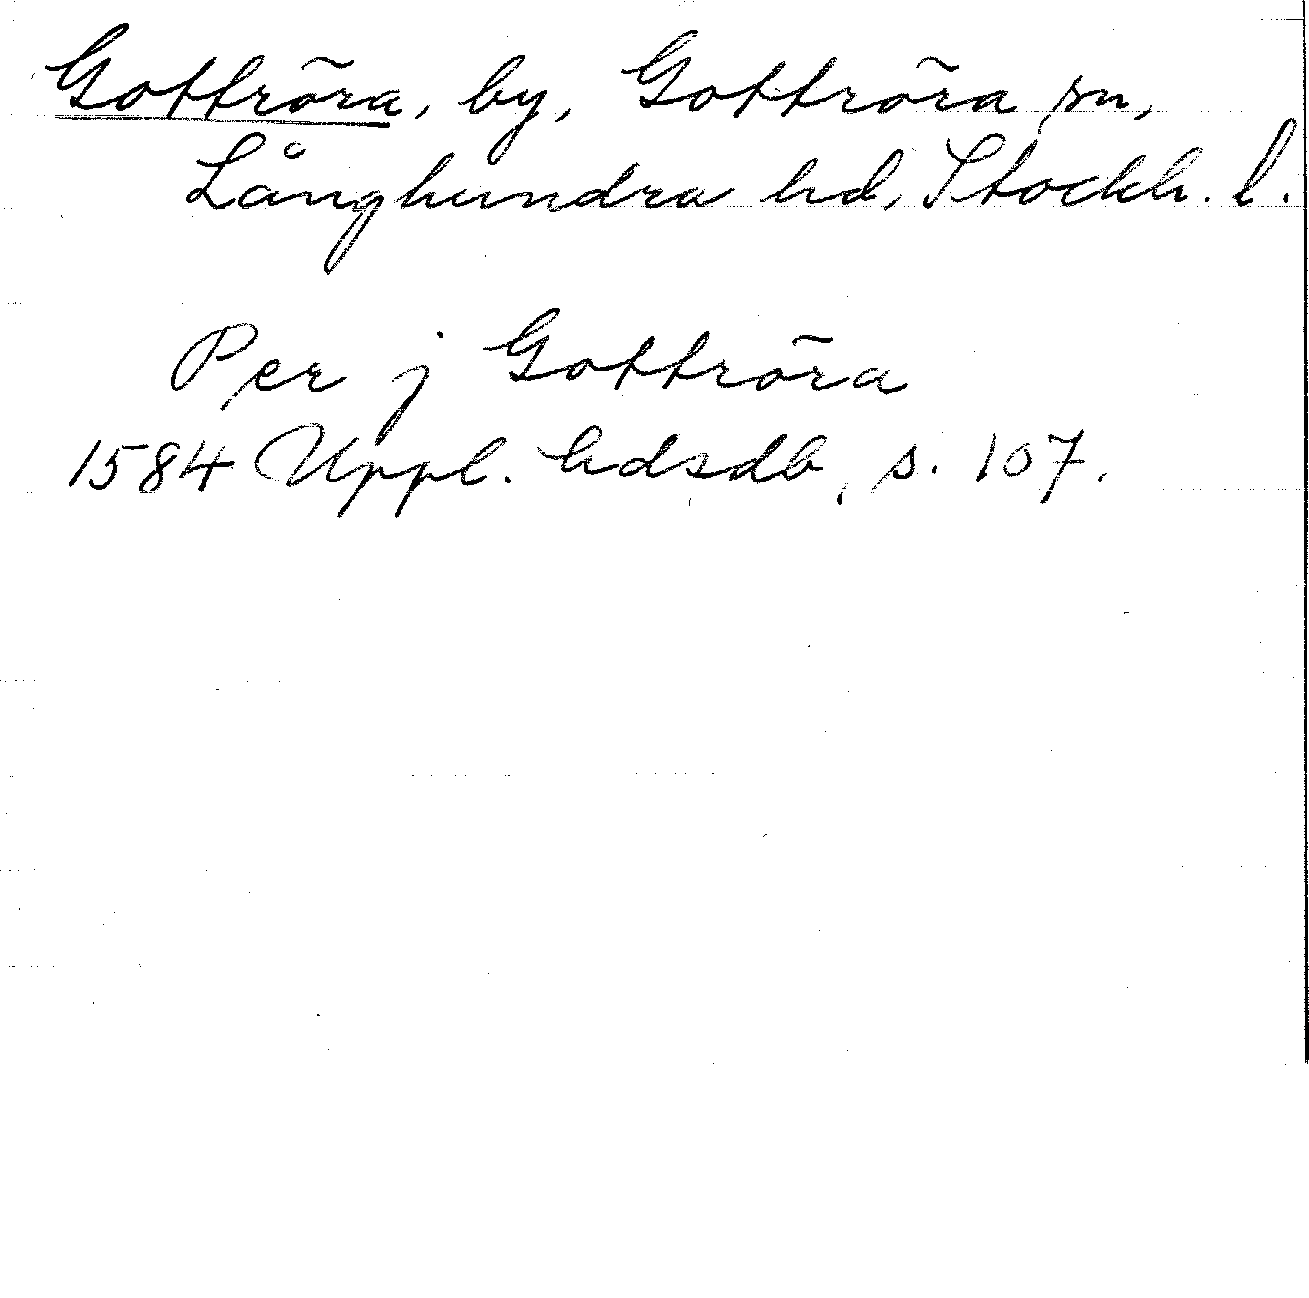 Gottröra, by, Gottröra sn,
Långhundra hd, Stockh. l.
Per j Gottröra
1584 Uppl. hdsdb, s. 107.